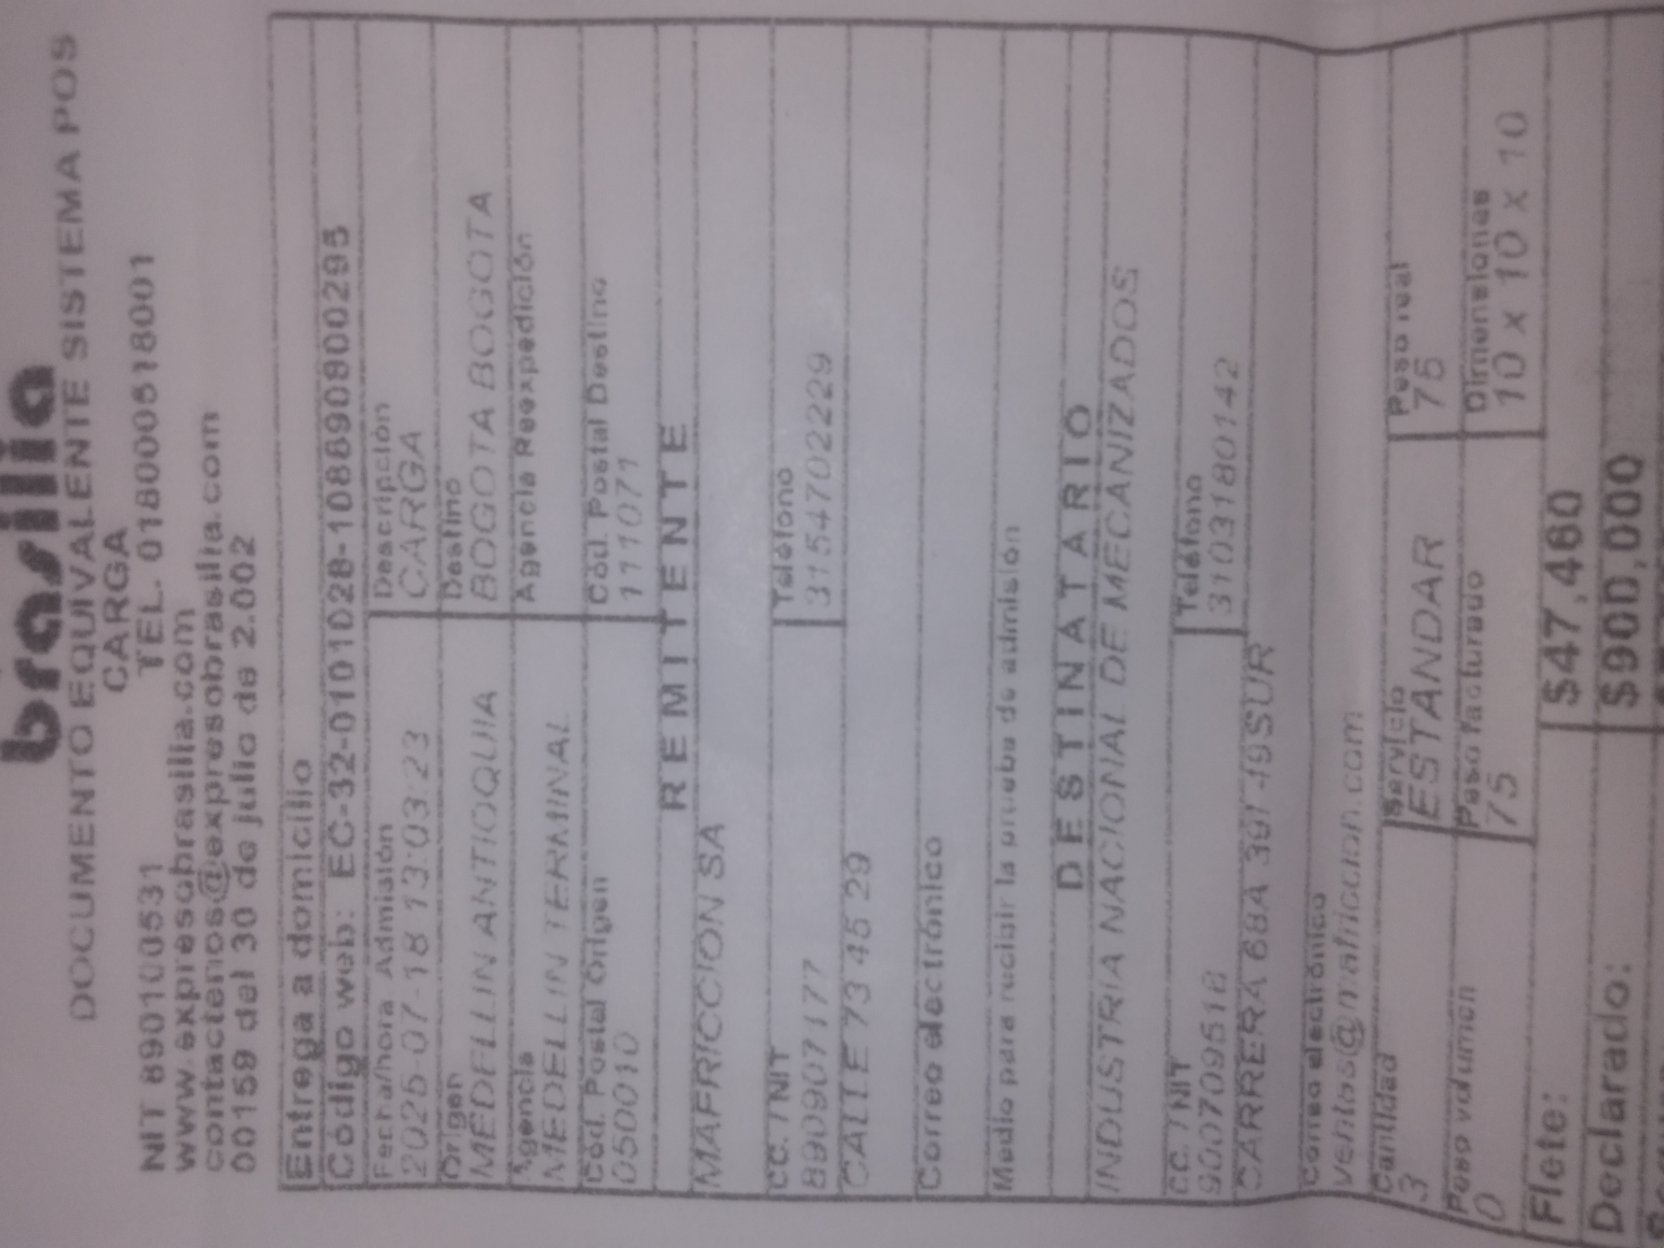 brasilia
DOCUMENTO EQUIVALENTE SISTEMA POS
CARGA
NIT 890100531 TEL. 018000518001
www.expresobrasilia.com
contactenos@expresobrasilia.com
00159 del 30 de julio de 2.002
Entrega a domicilio
Código web: EC-32-0101028-1088908000295
Fecha/hora Admisión Descripción
2025-07-18 13:03:23 CARGA
Origen Destino
MEDELLIN ANTIOQUIA BOGOTA BOGOTA
Agencia Agencia Reexpedición
MEDELLIN TERMINAL
Cód. Postal Origen Cód. Postal Destino
050010 111071
REMITENTE
MAFRICCION SA
CC. / NIT Teléfono
890907177 3154702229
CALLE 73 45 29
Correo electrónico
Medio para recibir la prueba de admisión
DESTINATARIO
INDUSTRIA NACIONAL DE MECANIZADOS
C.C. / NIT Teléfono
900709518 3103180142
CARRERA 68A 39I-19SUR
Correo electrónico
ventas@mafriccion.com
Cantidad Servicio Peso real
3 ESTANDAR 75
Peso volumen Peso facturado Dimensiones
0 75 10 x 10 x 10
Flete: $47,460
Declarado: $900,000